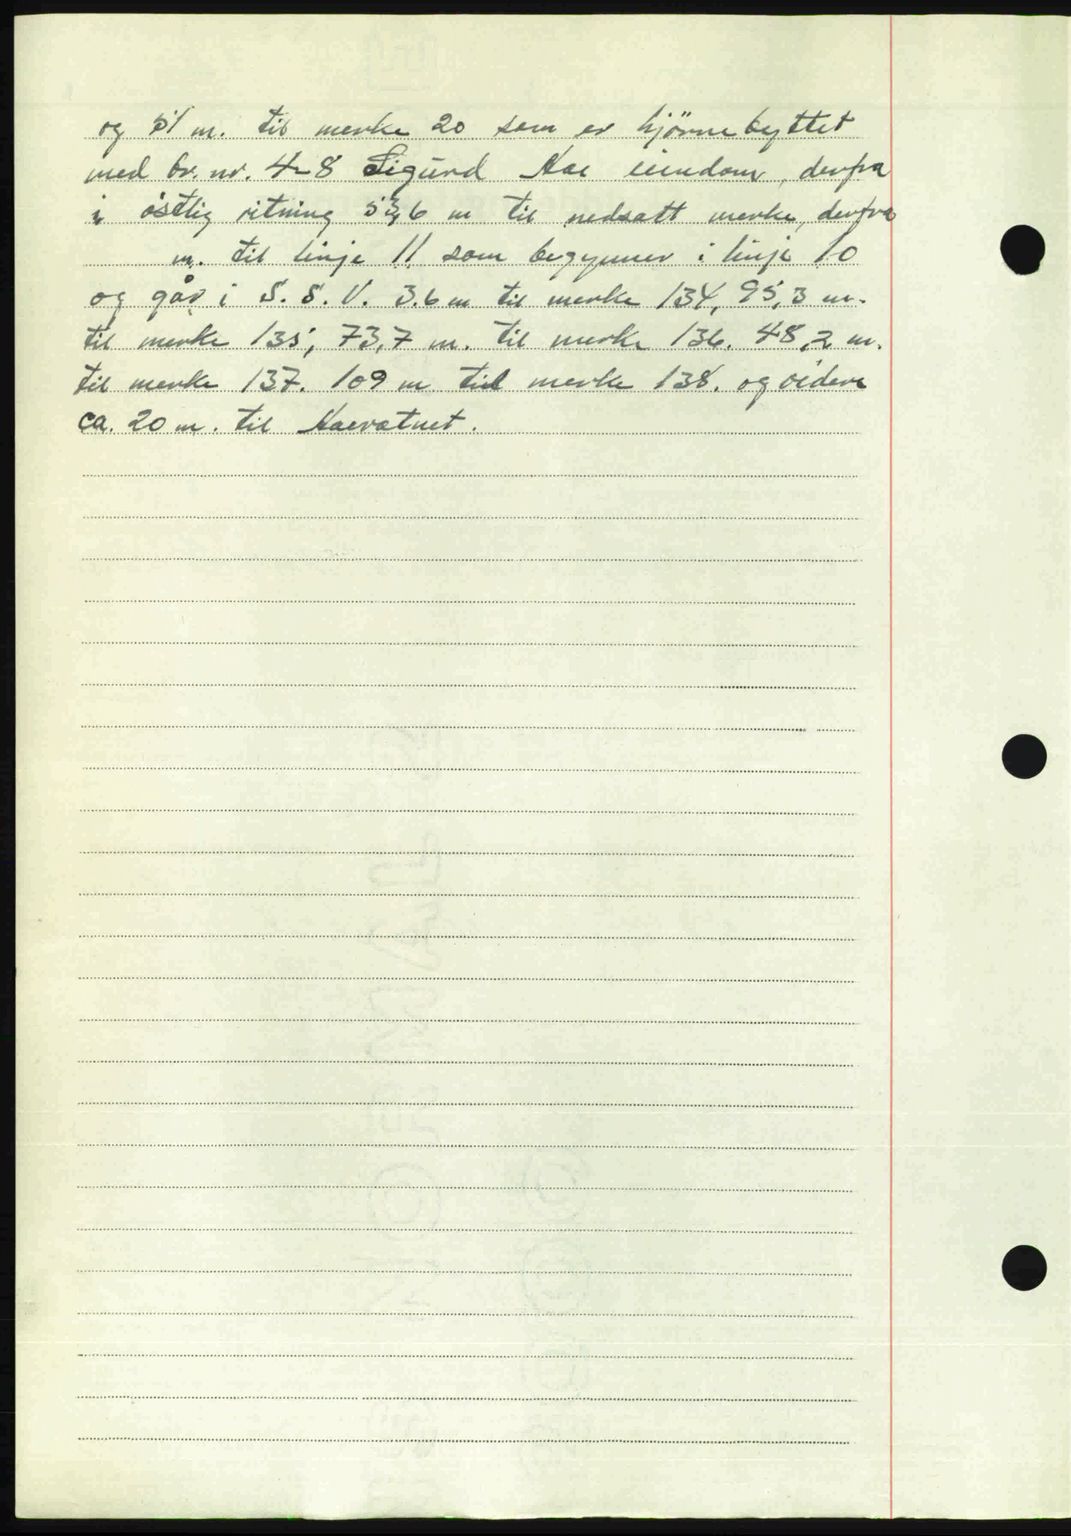 og 51 m. til merke 20 som er hjörne byttet
med br. nr. 4-8 Sigurd Hae eiendom, derfra
i östlig ritning 53,6 m til nedsatt merke, derfra
m. til linje 11 som begynner i linje 10
og går i S. S. V. 3.6 m til merke 134, 95,3 m.
til merke 135, 73,7 m. til merke 136. 48,2 m.
til merke 137. 109 m til merke 138. og videre
ca. 20 m. til Haevatnet.